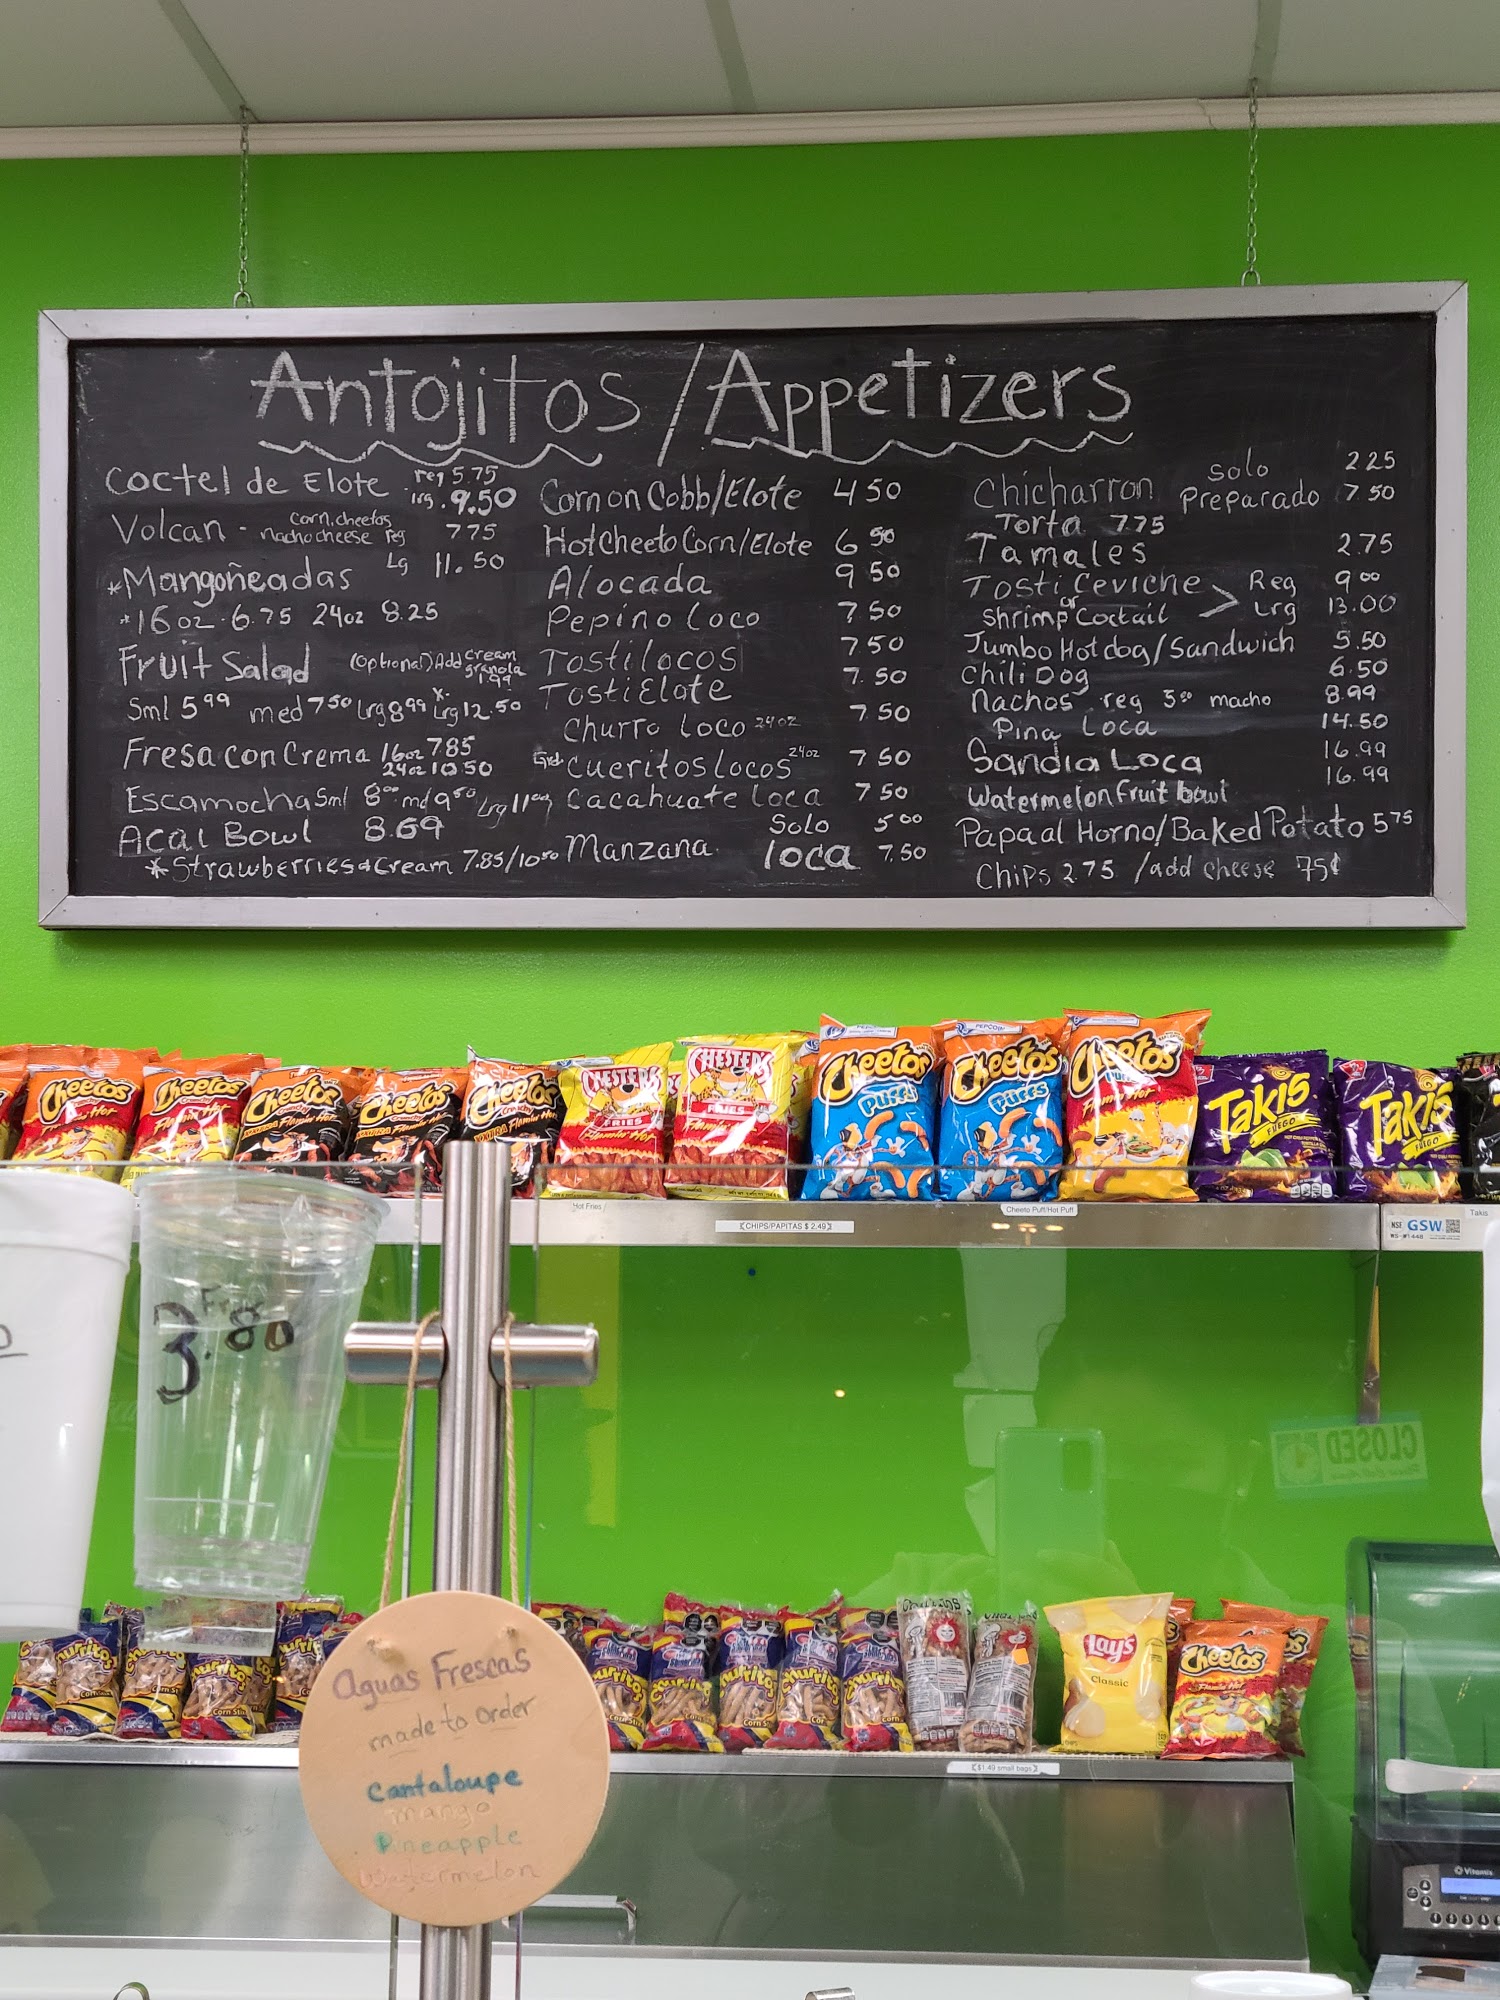 Antojitos / Appetizers
Coctel de Elote reg 5.75
lrg. 9.50
Volcan - corn, cheetos
nacho cheese reg 775
Lg 11.50
*Mangoñeadas
*16oz 6.75 24oz 8.25
Fruit Salad (optional) Add cream
granola
1.99
Sml 5.99 med 7.50 Lrg 8.99 x. Lrg 12.50
Fresa con Crema 16oz 7.85
24oz 10.50
Escamocha Sml 8.00 md 9.50 Lrg 11.00
Acai Bowl 8.69
*Strawberries & Cream 7.85/10.50
Corn on Cobb/Elote 4 50
Hot Cheeto Corn/Elote 6 50
Alocada 9 50
Pepino Loco 7.50
Tostilocos 7 50
TostiElote 7.50
Churro Loco 24oz 7 50
Cueritos Locos 24oz 7 50
Cacahuate Loca 7 50
Manzana Solo 5.00
loca 7.50
Chicharron Solo 2 25
Preparado 7 50
Torta 7.75
Tamales 2.75
Tosti Ceviche > Reg 9.00
or
Shrimp Coctail Lrg 13.00
Jumbo Hot dog/Sandwich 5.50
Chili Dog 6.50
Nachos reg 5.00 macho 8.99
Pina Loca 14.50
Sandia Loca 16.99
Watermelon Fruit bowl 16.99
Papa al Horno/Baked Potato 5.75
Chips 2.75 /add cheese 75¢
Cheetos
Cheetos
Cheetos
Cheetos
Cheetos
CHESTER'S
FRIES
Flamin' Hot
CHESTER'S
FRIES
Flamin' Hot
Cheetos
Puffs
Cheetos
Puffs
Cheetos
Flamin' Hot
Takis
FUEGO
Takis
FUEGO
Hot Fries
CHIPS/PAPITAS $ 2.49
Cheeto Puff/Hot Puff
NSF GSW
Takis
3.80
CLOSED
Churritos
Churritos
Churritos
Churritos
Lay's
Classic
Cheetos
Flamin' Hot
$1.49 small bags
Vitamix
Aguas Frescas
made to order
Cantaloupe
mango
Pineapple
Watermelon